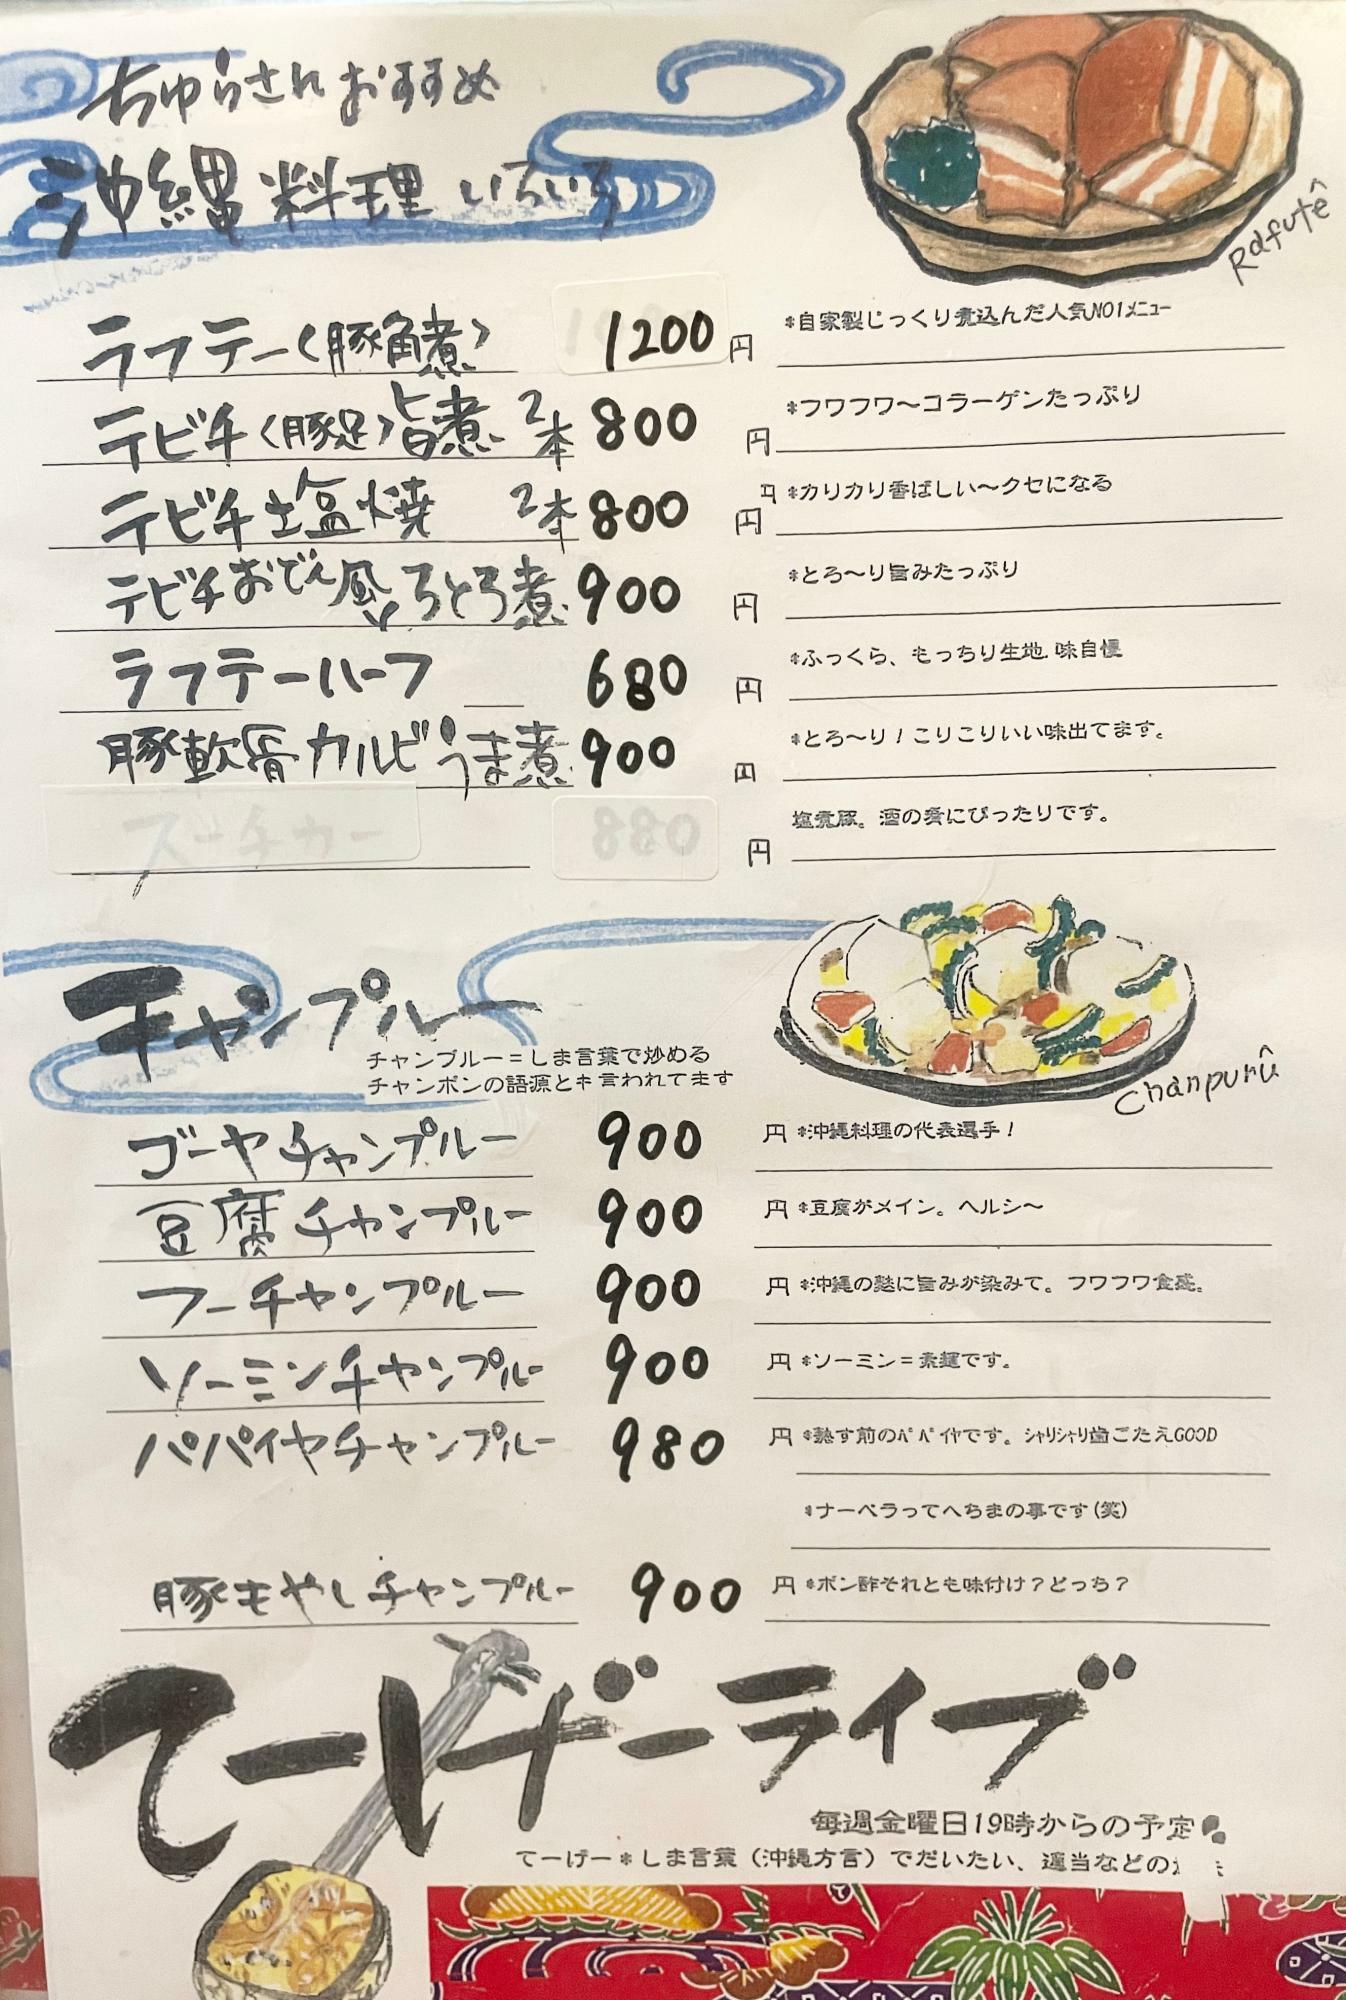 ちゅらさんおすすめ
沖縄料理いろいろ
Rafutê
ラフテー〈豚角煮〉 1200 円 *自家製じっくり煮込んだ人気NO1メニュー
テビチ〈豚足〉旨煮 2本 800 円 *フワフワ～コラーゲンたっぷり
テビチ塩焼 2本 800 円 円 *カリカリ香ばしい～クセになる
テビチおでん風とろとろ煮 900 円 *とろ～り旨みたっぷり
ラフテーハーフ 680 円 *ふっくら、もっちり生地.味自慢
豚軟骨カルビうま煮 900 円 *とろ～り！こりこりいい味出てます。
スーチカー 880 円 塩煮豚。酒の肴にぴったりです。
チャンプルー
チャンプルー＝しま言葉で炒める
チャンポンの語源とも言われてます
Chanpurû
ゴーヤチャンプルー 900 円 *沖縄料理の代表選手！
豆腐チャンプルー 900 円 *豆腐がメイン。ヘルシ～
フーチャンプルー 900 円 *沖縄の麩に旨みが染みて。フワフワ食感。
ソーミンチャンプルー 900 円 *ソーミン＝素麺です。
パパイヤチャンプルー 980 円 *熟す前のパパイヤです。シャリシャリ歯ごたえGOOD
*ナーベラってへちまの事です(笑)
豚もやしチャンプルー 900 円 *ポン酢それとも味付け？どっち？
てーげーライブ
毎週金曜日19時からの予定
てーげー*しま言葉（沖縄方言）でだいたい、適当などの